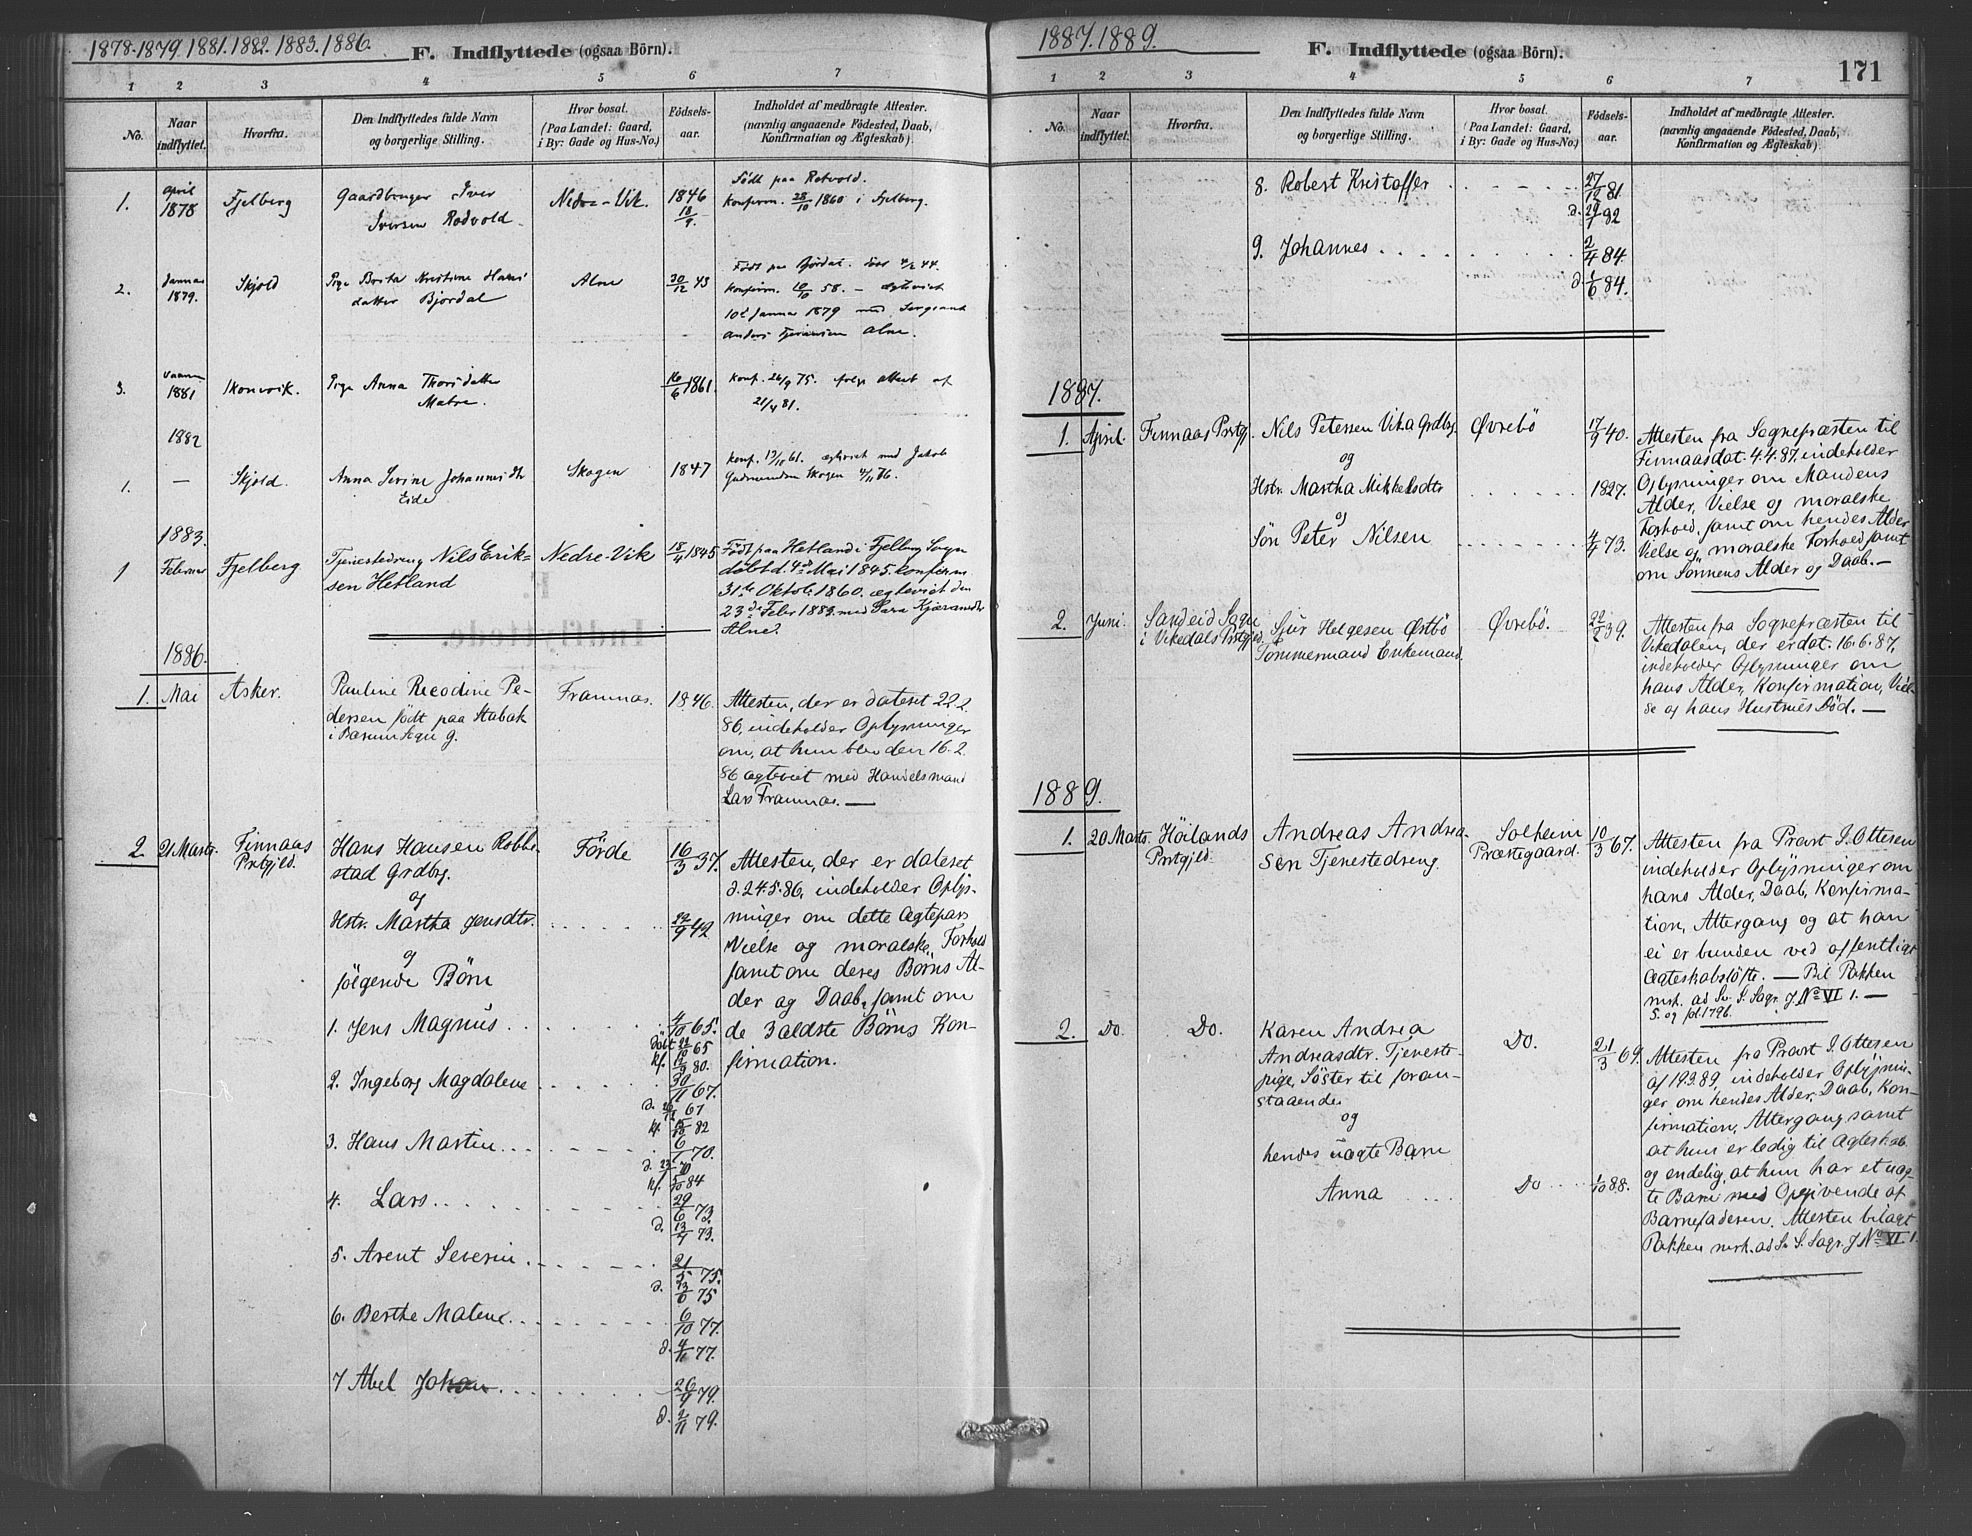 1878. 1879. 1881. 1882. 1883. 1886.
F. Indflyttede (ogsaa Börn).
1 2 3 4 5 6 7
No.
Naar indflyttet.
Hvorfra.
Den Indflyttedes fulde Navn
og borgerlige Stilling.
Hvor bosat.
(Paa Landet: Gaard,
i By: Gade og Hus-No.)
Födsels-
aar.
Indholdet af medbragte Attester.
(navnlig angaaende Födested, Daab,
Konfirmation og Ægteskab)
1. April 1878 Fjelberg
Gaardbruger Iver
Iversen Rodvold
Nedre-Vik.
1846
18/9.
Född paa Rotvold.
Konfirm. 28/10 1860 i Fjelberg.
2. Januar 1879. Skjold
Pige Brita Kristine Hans
datter Bjordal
Alne
30/12 43
Födt paa Bjordal. 4/2 44.
Konfirm. 10/10 58. — ægteviet
10de Januar 1879 med Sergeant
Anders Alne.
3. 1881
Pige Anna Thorsdatter
Matre.
16/6 1861.
Konf. 26/9 75. ifölge attest af
21/4 81.
1882
1. — Skjold.
Anna Serine Johannesdtr
Eide
Skogen
1847
Konf. 13/10 61. ægteviet med Jakob
Gudmundsen Skogen 4/11 76.
1883.
1 Februar Fjelberg
Tjenestedreng Nils Erik-
sen Hetland
Nedre-Vik
18/4 1845
Födt paa Hetland i Fjelberg Sogn
döbt d. 4de Mai 1845. konfirm.
31te Oktob. 1860. ægteviet den
23de Febr 1883 med Sara Kjærandsdtr
Alne.
1886.
1. Mai Asker.
Pauline Ricodine Pe-
dersen födt paa Stabæk
i Bærum Sogn
Framnæs.
1846.
Attesten, der er dateret 22.2.
86, indeholder Oplysninger
om, at hun blev den 16.2.
86 ægteviet med Handelsmand
Lars Framnæs. —
2. 21 Marts. Finnaas
Prstgjld.
Hans Hansen Robbe-
stad Grdbr.
og
Hstr. Martha Jensdtr.
og
følgende Börn
Förde
16/3 37.
22/9 42
Attesten, der er dateret
d. 24.5.86, indeholder Oplys-
ninger om dette Ægtepars
Vielse og moralske Forhold
samt om deres Börns Al-
der og Daab, samt om
de 3 ældste Börns Kon-
firmation.
1. Jens Magnus
4/10 65.
döbt 22/10 65
kf. 12/9 80.
2. Ingeborg Magdalene
30/11 67.
d. 26/12 67
kf. 15/10 82
3. Hans Martin
6/1 70.
d. 23/1 70
kf. 5/10 84
4. Lars
29/6 73
d. 13/7 73.
5. Arent Severin
21/5 75.
d. 13/6 75
6. Berthe Malene
6/10 77.
d. 4/11 77.
7 Abel Johan
26/9 79.
d. 2/11 79.
1887. 1889.
F. Indflyttede (ogsaa Börn).
171
1 2 3 4 5 6 7
No.
Naar indflyttet.
Hvorfra.
Den Indflyttedes fulde Navn
og borgerlige Stilling.
Hvor bosat.
(Paa Landet: Gaard,
i By: Gade og Hus-No.)
Födsels-
aar.
Indholdet af medbragte Attester.
(navnlig angaaende Födested, Daab,
Konfirmation og Ægteskab)
8. Robert Kristoffer
27/12 81
d. 29/1 82
9. Johannes
2/4 84.
d. 1/6 84.
1887.
1. April. Finnaas Prstgj.
Nils Petersen Vika Grdbr.
og
Hstr. Martha Mikkelsdtr
og
Sön Peter Nilsen
Øvrebö
17/9 40.
1827.
4/4 73.
Attesten fra Sognepræsten til
Finnaas dat. 4.4.87, indeholder
Oplysninger om Mandens
Alder, Vielse og moralske
Forhold, samt om hendes Alder
Vielse og moralske Forhold samt
om Sönnens Alder og Daab. —
2. Juni. Sandeid Sogn
i Vikedals Prstgjld.
Sjur Helgesen Østbö
Tommermand Enkemand.
Øvrebö.
22/2 39.
Attesten fra Sognepræsten til
Vikedalen, der er dat. 16.6.87,
indeholder Oplysninger om
hans Alder, Konfirmation, Viel-
se og hans Hustrues Död. —
1889.
1. 20 Marts. Höilands
Prstgjld.
Andreas Andrea-
sen Tjenestedreng.
Solheim
Præstegaard.
10/3 67.
Attesten fra Provst J. Ottesen
indeholder Oplysninger om
hans Alder, Daab, Konfirma-
tion, Altergang og at han
ei er bunden ved offentligt
Ægteskabslöfte. — Bil. Pakken
mrk. ad Sv. S. Sagr. J No VI 1. —
S. og fol. 179b.
2. Do. Do.
Karen Andrea
Andreasdtr. Tjeneste-
pige, Söster til foran-
staaende
og
hendes uægte Barn
Anna
Do.
Do
21/3 69.
1/10 88.
Attesten fra Provst J. Ottesen
af 19.3.89, indeholder Oplysnin-
ger om hendes Alder, Daab, Kon-
firmation, Altergang samt
at hun er ledig til Ægteskab.
og endelig, at hun har et uæg-
te Barn med Opgivende af
Barnefaderen. Attesten bilagt
Pakken mrk. ad Sv. S. Sagr. J No VI. 1.